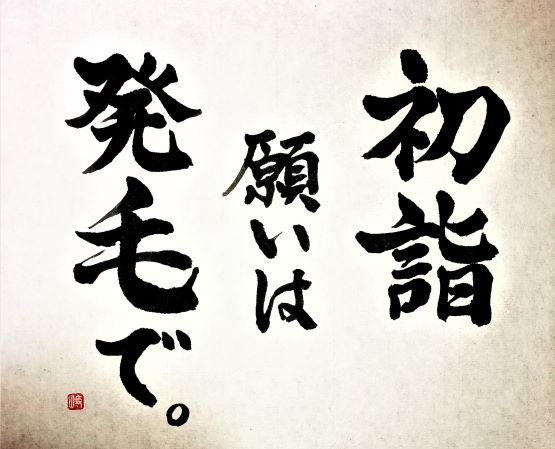 初詣
願いは
発毛で。